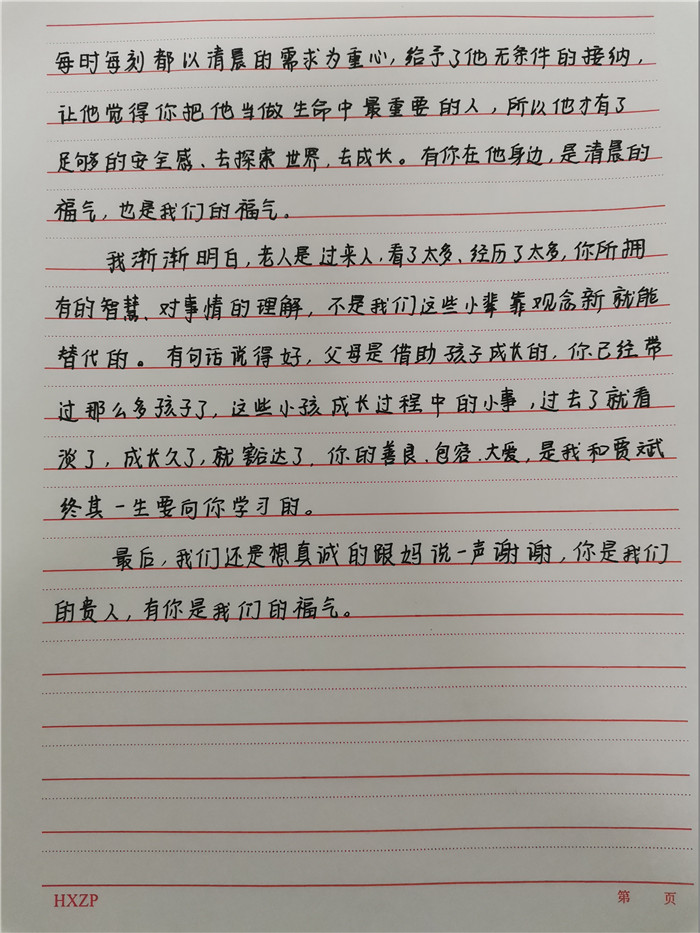 每时每刻都以清晨的需求为重心，给予了他无条件的接纳，
让他觉得你把他当做生命中最重要的人，所以他才有了
足够的安全感、去探索世界，去成长。有你在他身边，是清晨的
福气，也是我们的福气。
我渐渐明白，老人是过来人，看了太多、经历了太多，你所拥
有的智慧、对事情的理解，不是我们这些小辈靠观念新就能
替代的。有句话说得好，父母是借助孩子成长的，你已经带
过那么多孩子了，这些小孩成长过程中的小事，过去了就看
淡了，成长久了，就豁达了，你的善良、包容、大爱，是我和贾斌
终其一生要向你学习的。
最后，我们还是想真诚的跟妈说一声谢谢，你是我们
的贵人，有你是我们的福气。
HXZP
第 页